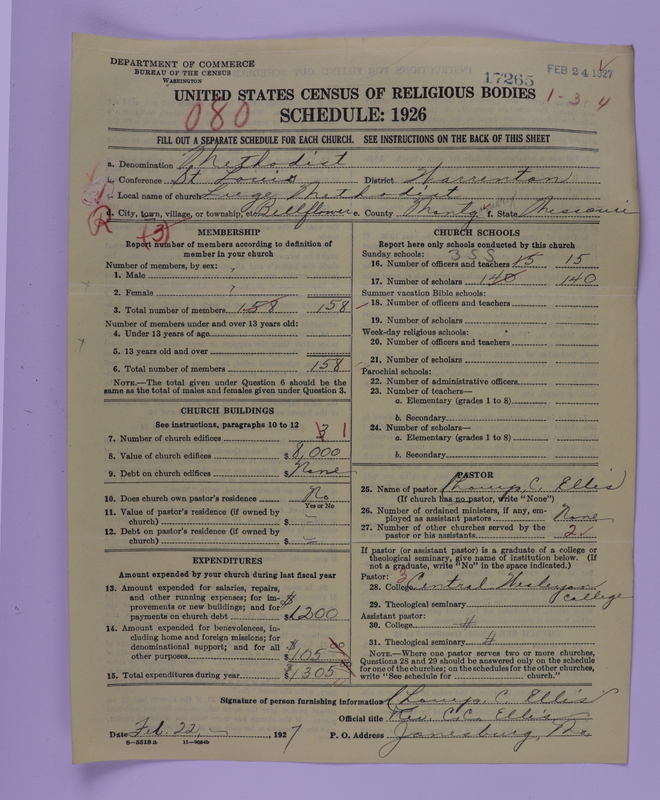 DEPARTMENT OF COMMERCE
BUREAU OF THE CENSUS
WASHINGTON
17265
FEB 24 1927
UNITED STATES CENSUS OF RELIGIOUS BODIES
1-3-4
080
SCHEDULE: 1926
FILL OUT A SEPARATE SCHEDULE FOR EACH CHURCH. SEE INSTRUCTIONS ON THE BACK OF THIS SHEET
a. Denomination Methodist
b. Conference St Louis District Warrenton
c. Local name of church Methodist
d. City, town, village, or township, etc. Bellflower e. County Montg f. State Missouri
R
(3)
MEMBERSHIP
Report number of members according to definition of member in your church
Number of members, by sex:
1. Male ?
2. Female ?
3. Total number of members 158 158
Number of members under and over 13 years old:
4. Under 13 years of age
5. 13 years old and over
6. Total number of members 158
NOTE.—The total given under Question 6 should be the same as the total of males and females given under Question 3.
CHURCH BUILDINGS
See instructions, paragraphs 10 to 12
7. Number of church edifices 1
8. Value of church edifices $8,000
9. Debt on church edifices $None
10. Does church own pastor's residence No
Yes or No
11. Value of pastor's residence (if owned by church) $ –
12. Debt on pastor's residence (if owned by church) $ –
EXPENDITURES
Amount expended by your church during last fiscal year
13. Amount expended for salaries, repairs, and other running expenses; for improvements or new buildings; and for payments on church debt $1200
14. Amount expended for benevolences, including home and foreign missions; for denominational support; and for all other purposes $105
15. Total expenditures during year $1305
CHURCH SCHOOLS
Report here only schools conducted by this church
Sunday schools: 358
16. Number of officers and teachers 15 15
17. Number of scholars 140 140
Summer vacation Bible schools:
18. Number of officers and teachers
19. Number of scholars
Week-day religious schools:
20. Number of officers and teachers
21. Number of scholars
Parochial schools:
22. Number of administrative officers
23. Number of teachers—
a. Elementary (grades 1 to 8)
b. Secondary
24. Number of scholars—
a. Elementary (grades 1 to 8)
b. Secondary
PASTOR
25. Name of pastor Chomp. C. Ellis
(If church has no pastor, write "None")
26. Number of ordained ministers, if any, employed as assistant pastors None
27. Number of other churches served by the pastor or his assistants 2
If pastor (or assistant pastor) is a graduate of a college or theological seminary, give name of institution below. (If not a graduate, write "No" in the space indicated.)
Pastor: 3
28. College Central Wesleyan College
29. Theological seminary
Assistant pastor:
30. College #
31. Theological seminary #
NOTE.—Where one pastor serves two or more churches, Questions 28 and 29 should be answered only on the schedule for one of the churches; on the schedules for the other churches, write "See schedule for church."
Signature of person furnishing information Chomp. C. Ellis
Official title Rev. C.C. Ellis
Date Feb. 22, 1927 P. O. Address Jonesburg, Mo.
8—5518 a